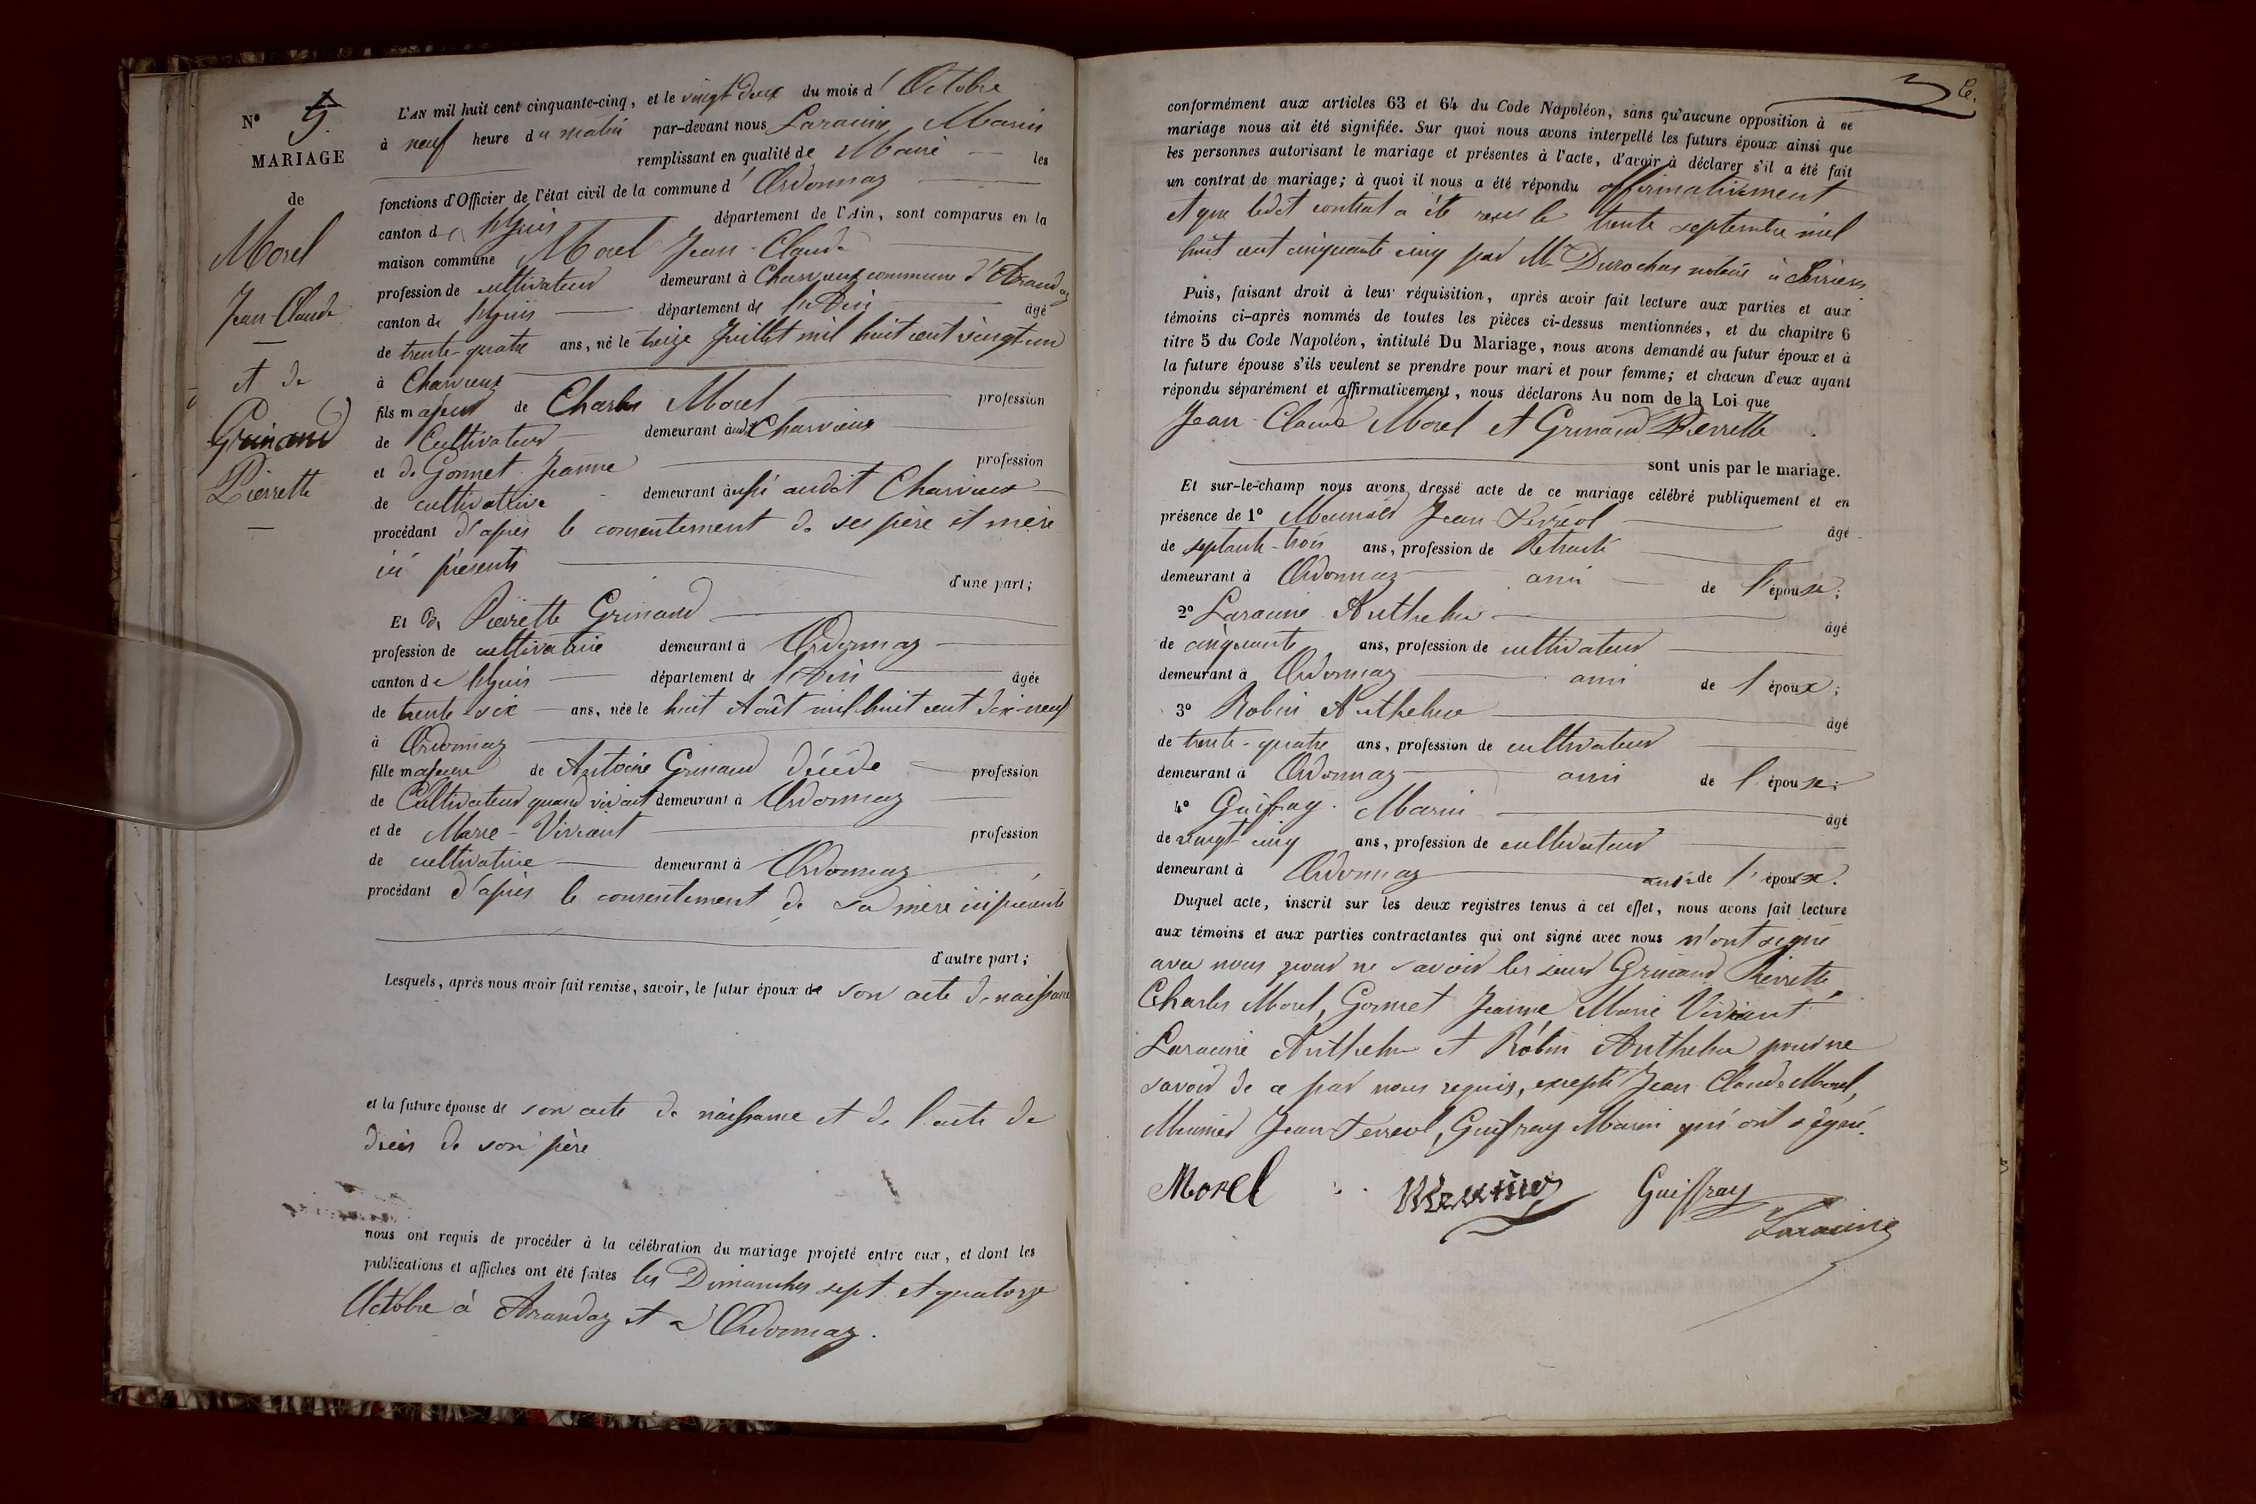 N° 5.
MARIAGE
de
Morel
Jean Claude
et de
Grinand
Pierrette
L'AN mil huit cent cinquante-cinq, et le vingt deux du mois d'Octobre
à neuf heure du matin par-devant nous Laracine Marin
remplissant en qualité de Maire les
fonctions d'Officier de l'état civil de la commune d'Ordonnaz
canton de lhuis département de l'Ain, sont comparus en la
maison commune Morel Jean-Claude
profession de cultivateur demeurant à Charvieux commune d'Arandaz
canton de lhuis département de l'Ain âgé
de trente-quatre ans, né le treize Juillet mil huit cent vingt un
à Charvieux
fils majeur de Charles Morel profession
de Cultivateur demeurant audit Charvieux
et de Gonnet Jeanne profession
de cultivatrice demeurant aussi audit Charvieux
procédant d'après le consentement de ses père et mère
ici présents
d'une part;
Et De Pierrette Grinand
profession de cultivatrice demeurant à Ordonnaz
canton de lhuis département de l'Ain âgée
de trente-six ans, née le huit Août mil huit cent dix-neuf
à Ordonnaz
fille majeure de Antoine Grinand décédé profession
de Cultivateur quand vivait demeurant à Ordonnaz
et de Marie-Viviant profession
de cultivatrice demeurant à Ordonnaz
procédant d'après le consentement de sa mère ici présente
d'autre part;
Lesquels, après nous avoir fait remise, savoir, le futur époux de son acte de naissance
et la future épouse de son acte de naissance et de l'acte de
décès de son père
nous ont requis de procéder à la célébration du mariage projeté entre eux, et dont les
publications et affiches ont été faites les Dimanches sept et quatorze
Octobre à Arandaz et à Ordonnaz.
6.
conformément aux articles 63 et 64 du Code Napoléon, sans qu'aucune opposition à ce
mariage nous ait été signifiée. Sur quoi nous avons interpellé les futurs époux ainsi que
les personnes autorisant le mariage et présentes à l'acte, d'avoir à déclarer s'il a été fait
un contrat de mariage; à quoi il nous a été répondu affirmativement
et que ledit contrat a été reçu le trente septembre mil
huit cent cinquante cinq par Me Durochat notaire à
Puis, faisant droit à leur réquisition, après avoir fait lecture aux parties et aux
témoins ci-après nommés de toutes les pièces ci-dessus mentionnées, et du chapitre 6
titre 5 du Code Napoléon, intitulé Du Mariage, nous avons demandé au futur époux et à
la future épouse s'ils veulent se prendre pour mari et pour femme; et chacun d'eux ayant
répondu séparément et affirmativement, nous déclarons Au nom de la Loi que
Jean-Claude Morel et Grinand Pierrette
sont unis par le mariage.
Et sur-le-champ nous avons dressé acte de ce mariage célébré publiquement et en
présence de 1° Meunier Jean Ferréol âgé
de septante-trois ans, profession de Retraité
demeurant à Ordonnaz ami de l'épouse;
2° Laracine Anthelme âgé
de cinquante ans, profession de cultivateur
demeurant à Ordonnaz ami de l'époux;
3° Robin Anthelme âgé
de trente-quatre ans, profession de cultivateur
demeurant à Ordonnaz ami de l'épouse;
4° Guiffray Marin âgé
de vingt-cinq ans, profession de cultivateur
demeurant à Ordonnaz ami de l'époux.
Duquel acte, inscrit sur les deux registres tenus à cet effet, nous avons fait lecture
aux témoins et aux parties contractantes qui ont signé avec nous n'ont signé
avec nous pour ne savoir les sieurs Grinand Pierrette,
Charles Morel, Gonnet Jeanne, Marie Viviant
Laracine Anthelme et Robin Anthelme pour ne
savoir de ce par nous requis, excepté Jean Claude Morel,
Meunier Jean Ferreol, Guiffray Marin qui ont signé.
Morel Meunier Guiffray
Laracine